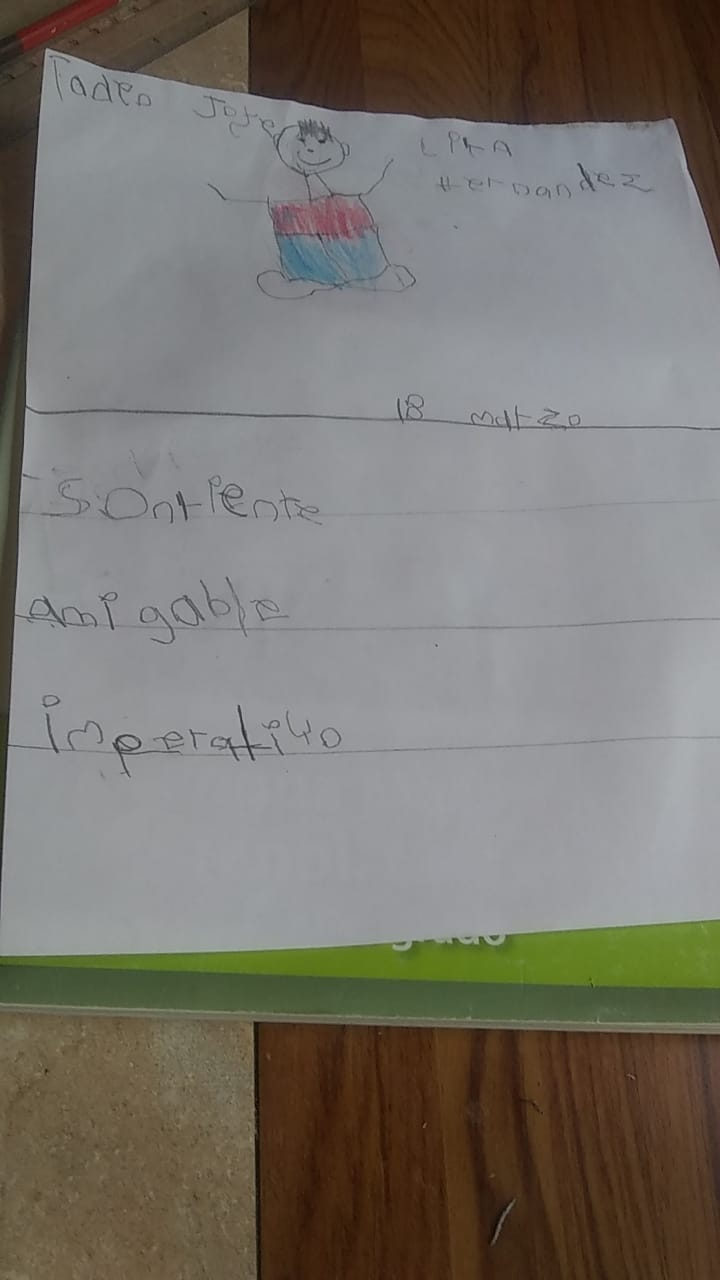 Tadeo Jose
Hernandez
18 marzo
Sonriente
amigable
imperativo
grado